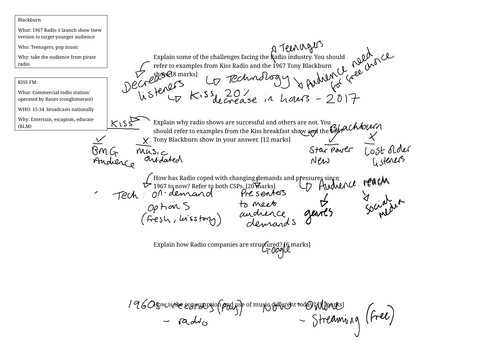 Blackburn
What: 1967 Radio 1 launch show (new station to target younger audience
Who: Teenagers, pop music
Why: take the audience from pirate radio
KISS FM:
What: Commercial radio station/ operated by Bauer (conglomerate)
WHO: 15-34 broadcasts nationally
Why: Entertain, escapism, educate (BLM)
Teenagers
Explain some of the challenges facing the Radio industry. You should
refer to examples from Kiss Radio and the 1967 Tony Blackburn
show. [8 marks]
Decrease listeners
Technology
Audience need for free choice
Kiss 20% decrease in hours - 2017
KISS
Explain why radio shows are successful and others are not. You
should refer to examples from the Kiss breakfast show and the
Tony Blackburn show in your answer. [12 marks]
Blackburn
✓ X
BMG Audience
music outdated
✓ X
Star Power New
Lost older listeners
How has Radio coped with changing demands and pressures since
1967 to now? Refer to both CSPs. [20 marks]
Tech: on-demand options (fresh, kisstory)
Presenters to meet audience demands
Audience reach
genres
social media
Explain how Radio companies are structured? [6 marks]
Google
How is the consumption and use of music different today?
1960s - records (pay)
- radio
Now - Online
- Streaming (free)